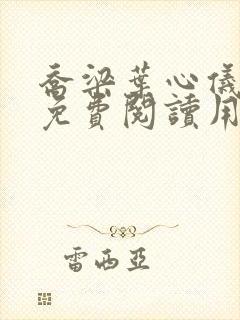 喬梁葉心儀
免費閱讀用
雷西亞